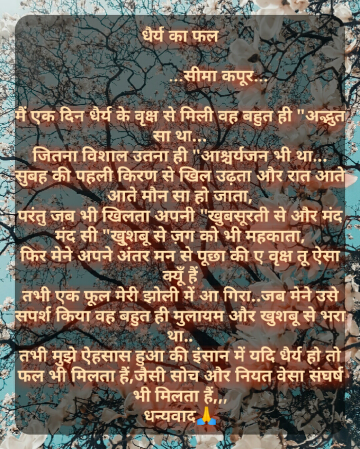 धैर्य का फल
...सीमा कपूर...
मैं एक दिन धैर्य के वृक्ष से मिली वह बहुत ही "अद्भुत
सा था...
जितना विशाल उतना ही "आश्चर्यजन भी था...
सुबह की पहली किरण से खिल उढ़ता और रात आते
आते मौन सा हो जाता,
परंतु जब भी खिलता अपनी "खुबसूरती से और मंद
मंद सी "खुशबू से ज़ग को भी महकाता,
फिर मेने अपने अंतर मन से पूछा की ए वृक्ष तू ऐसा
क्यूँ हैं
तभी एक फूल मेरी झोली में आ गिरा..जब मेने उसे
सपर्श किया वह बहुत ही मुलायम और खुशबू से भरा
था..
तभी मुझे ऐहसास हुआ की इंसान में यदि धैर्य हो तो
फल भी मिलता हैं,जैसी सोच और नियत वेसा संघर्ष
भी मिलता हैं,,,
धन्यवाद🙏